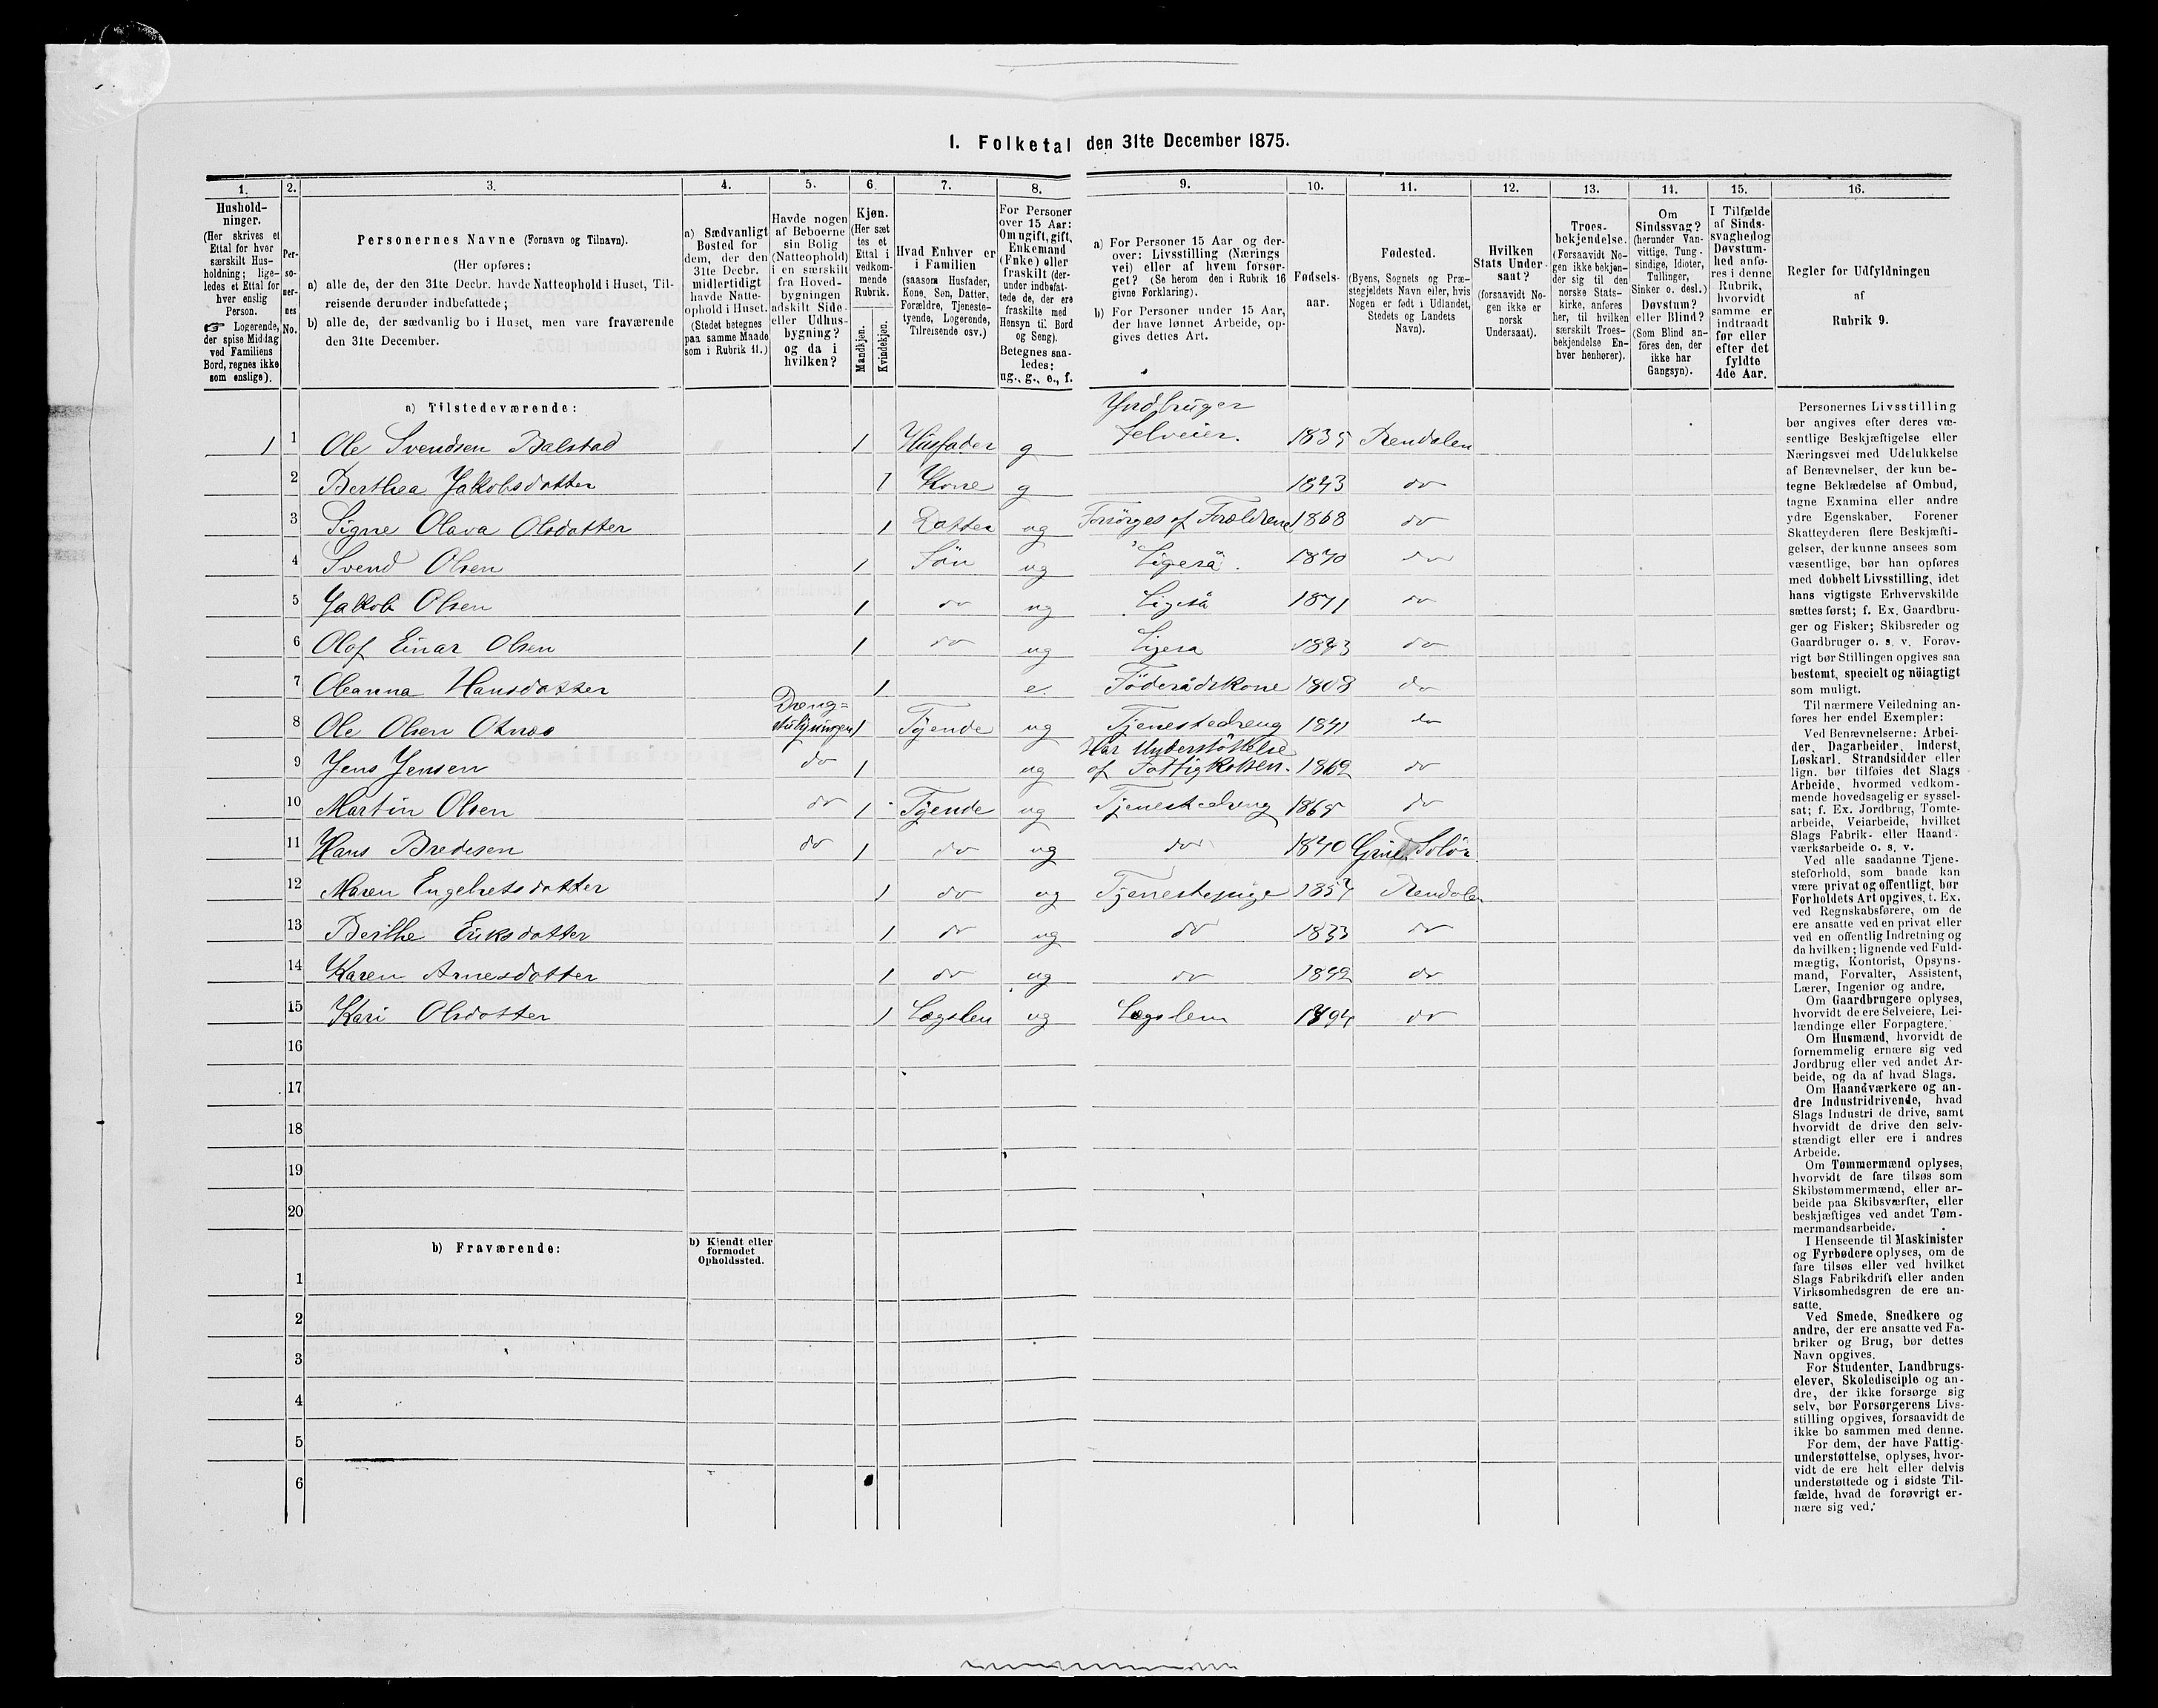 I. Folketal den 31te December 1875.
1. 2. 3. 4. 5. 6. 7. 8. 9. 10. 11. 12. 13. 14. 15. 16.
Hushold-
ninger.
(Her skrives et
Ettal for hver
særskilt Hus-
holdning; lige-
ledes et Ettal for
hver enslig
Person.
☞ Logerende,
der spise Middag
ved Familiens
Bord, regnes ikke
som enslige).
Per-
so-
ner-
nes
No.
Personernes Navne (Fornavn og Tilnavn).
(Her opføres:
a) alle de, der den 31te Decbr. havde Natteophold i Huset, Til-
reisende derunder indbefattede;
b) alle de, der sædvanlig bo i Huset, men vare fraværende
den 31te December.
a) Sædvanligt
Bosted for
dem, der den
31te Decbr.
midlertidigt
havde Natte-
ophold i Huset.
(Stedet betegnes
paa samme Maade
som i Rubrik 11.)
Havde nogen
af Beboerne
sin Bolig
(Natteophold)
i en særskilt
fra Hoved-
bygningen
adskilt Side-
eller Udhus-
bygning?
og da i
hvilken?
Kjøn.
(Her sæt
tes et
Ettal i
vedkom-
mende
Rubrik.
Mandkjøn.
Kvindekjøn.
Hvad Enhver er
i Familien
(saasom Husfader,
Kone, Søn, Datter,
Forældre, Tjeneste-
tyende, Logerende,
Tilreisende osv.)
For Personer
over 15 Aar:
Om ugift, gift,
Enkemand
(Enke) eller
fraskilt (der-
under indbefat-
tede de, der ere
fraskilte med
Hensyn til Bord
og Seng).
Betegnes saa-
ledes:
ug., g., e., f.
a) For Personer 15 Aar og der-
over: Livsstilling (Nærings
vei) eller af hvem forsør-
get? (Se herom den i Rubrik 16
givne Forklaring).
b) For Personer under 15 Aar,
der have lønnet Arbeide, op-
gives dettes Art.
Fødsels-
aar.
Fødested.
(Byens, Sognets og Præ-
stegjeldets Navn eller, hvis
Nogen er født i Udlandet,
Stedets og Landets
Navn).
Hvilken
Stats Under-
saat?
(forsaavidt No-
gen ikke er
norsk
Undersaat).
Troes-
bekjendelse.
(Forsaavidt No-
gen ikke bekjen-
der sig til den
norske Stats-
kirke, anføres
her, til hvilken
særskilt Troes-
bekjendelse En-
hver henhører).
Om
Sindssvag?
(herunder Van-
vittige, Tung-
sindige, Idioter,
Tullinger,
Sinker o. desl.)
Døvstum?
eller Blind?
(Som Blind an-
føres den, der
ikke har
Gangsyn).
I Tilfælde
af Sinds-
svaghed og
Døvstum-
hed anfø-
res i denne
Rubrik,
hvorvidt
samme er
indtraadt
før eller
efter det
fyldte
4de Aar.
Regler for Udfyldningen
af
Rubrik 9.
a) Tilstedeværende:
1 1 Ole Svendsen Balstad 1 Husfader g Jordbruger Selveier. 1835 Rendalen
2 Berthea Jakobsdatter 1 Kone g 1843 do
3 Signe Olava Olsdatter 1 Datter ug Forsørges af Forældrene 1868 do
4 Svend Olsen 1 Søn ug Ligeså. 1870 do
5 Jakob Olsen 1 do ug Ligeså 1871 do
6 Olof Einar Olsen 1 do ug Ligesa 1873 do
7 Oleanna Hansdatter 1 e. Föderådskone 1808 do
8 Ole Olsen Otnes 1 Tyende ug Tjenestedreng 1841 do
9 Jens Jensen do 1 ug Har Understöttelse af Fattigkassen. 1862 do
10 Martin Olsen do 1 Tyende ug Tjenestedreng do
11 Hans Bredesen do 1 do ug do 1840 Grue Solör
12 Maren Engebretsdatter 1 do ug Tjenestepige 1857 Rendalen
13 Berthe Eriksdatter 1 do ug do 1833 do
14 Karen Arnesdatter 1 do ug do do
15 Kari Olsdatter 1 Lægslem ug Lægslem do
16
17
18
19
20
b) Fraværende:
b) Kjendt eller
formodet
Opholdssted.
1
2
3
4
5
6
Personernes Livsstilling
bør angives efter deres væ-
sentlige Beskjæftigelse eller
Næringsvei med Udelukkelse
af Benævnelser, der kun be-
tegne Beklædelse af Ombud,
tagne Examina eller andre
ydre Egenskaber. Forener
Skatteyderen flere Beskjæfti-
gelser, der kunne ansees som
væsentlige, bør han opføres
med dobbelt Livsstilling, idet
hans vigtigste Erhvervskilde
sættes først; f. Ex. Gaardbru-
ger og Fisker; Skibsreder og
Gaardbruger o. s. v. Forøv-
rigt bør Stillingen opgives saa
bestemt, specielt og nöiagtigt
som muligt.
Til nærmere Veiledning an-
føres her endel Exempler:
Ved Benævnelserne: Arbei-
der, Dagarbeider, Inderst,
Løskarl, Strandsidder eller
lign. bør tilføies det Slags
Arbeide, hvormed vedkom-
mende hovedsagelig er syssel-
sat; f. Ex. Jordbrug, Tomte-
arbeide, Veiarbeide, hvilket
Slags Fabrik- eller Haand-
værksarbeide o. s. v.
Ved alle saadanne Tjene-
steforhold, som baade kan
være privat og offentligt, bør
Forholdets Art opgives, t. Ex.
ved Regnskabsførere, om de
ere ansatte ved en privat eller
ved en offentlig Indretning og
da hvilken; lignende ved Fuld-
mægtig, Kontorist, Opsyns-
mand, Forvalter, Assistent,
Lærer, Ingeniør og andre.
Om Gaardbrugere oplyses,
hvorvidt de ere Selveiere, Lei-
lændinge eller Forpagtere.
Om Husmænd, hvorvidt de
fornemmelig ernære sig ved
Jordbrug eller ved andet Ar-
beide, og da af hvad Slags.
Om Haandværkere og an-
dre Industridrivende, hvad
Slags Industri de drive, samt
hvorvidt de drive den selv-
stændigt eller ere i andres
Arbeide.
Om Tømmermænd oplyses,
hvorvidt de fare tilsøs som
Skibstømmermænd, eller ar-
beide paa Skibsværfter, eller
beskjæftiges ved andet Tøm-
mermandsarbeide.
I Henseende til Maskinister
og Fyrbødere oplyses, om de
fare tilsøs eller ved hvilket
Slags Fabrikdrift eller anden
Virksomhedsgren de ere an-
satte.
Ved Smede, Snedkere og
andre, der ere ansatte ved Fa-
briker og Brug, bør dettes
Navn opgives.
For Studenter, Landbrugs-
elever, Skoledisciple og an-
dre, der ikke forsørge sig
selv, bør Forsørgerens Livs-
stilling opgives, forsaavidt de
ikke bo sammen med denne.
For dem, der have Fattig-
understøttelse, oplyses, hvor-
vidt de ere helt eller delvis
understøttede og i sidste Til-
fælde, hvad de forøvrigt er-
nære sig ved.